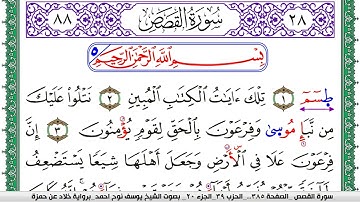 ٢٨ سُورَةُ القَصَصِ ٨٨
بِسْمِ اللَّهِ الرَّحْمَٰنِ الرَّحِيمِ
طسٓمٓ ١ تِلْكَ ءَايَٰتُ الْكِتَٰبِ الْمُبِينِ ٢ نَتْلُوا عَلَيْكَ
مِن نَّبَإِ مُوسَىٰ وَفِرْعَوْنَ بِالْحَقِّ لِقَوْمٍ يُؤْمِنُونَ ٣ إِنَّ
فِرْعَوْنَ عَلَا فِي الْأَرْضِ وَجَعَلَ أَهْلَهَا شِيَعًا يَسْتَضْعِفُ
سورة القصص .. الصفحة ٣٨٥.. الحزب ٣٩ .الجزء ٢٠ .. بصوت الشيخ يوسف نوح احمد ..برواية خلاد عن حمزة